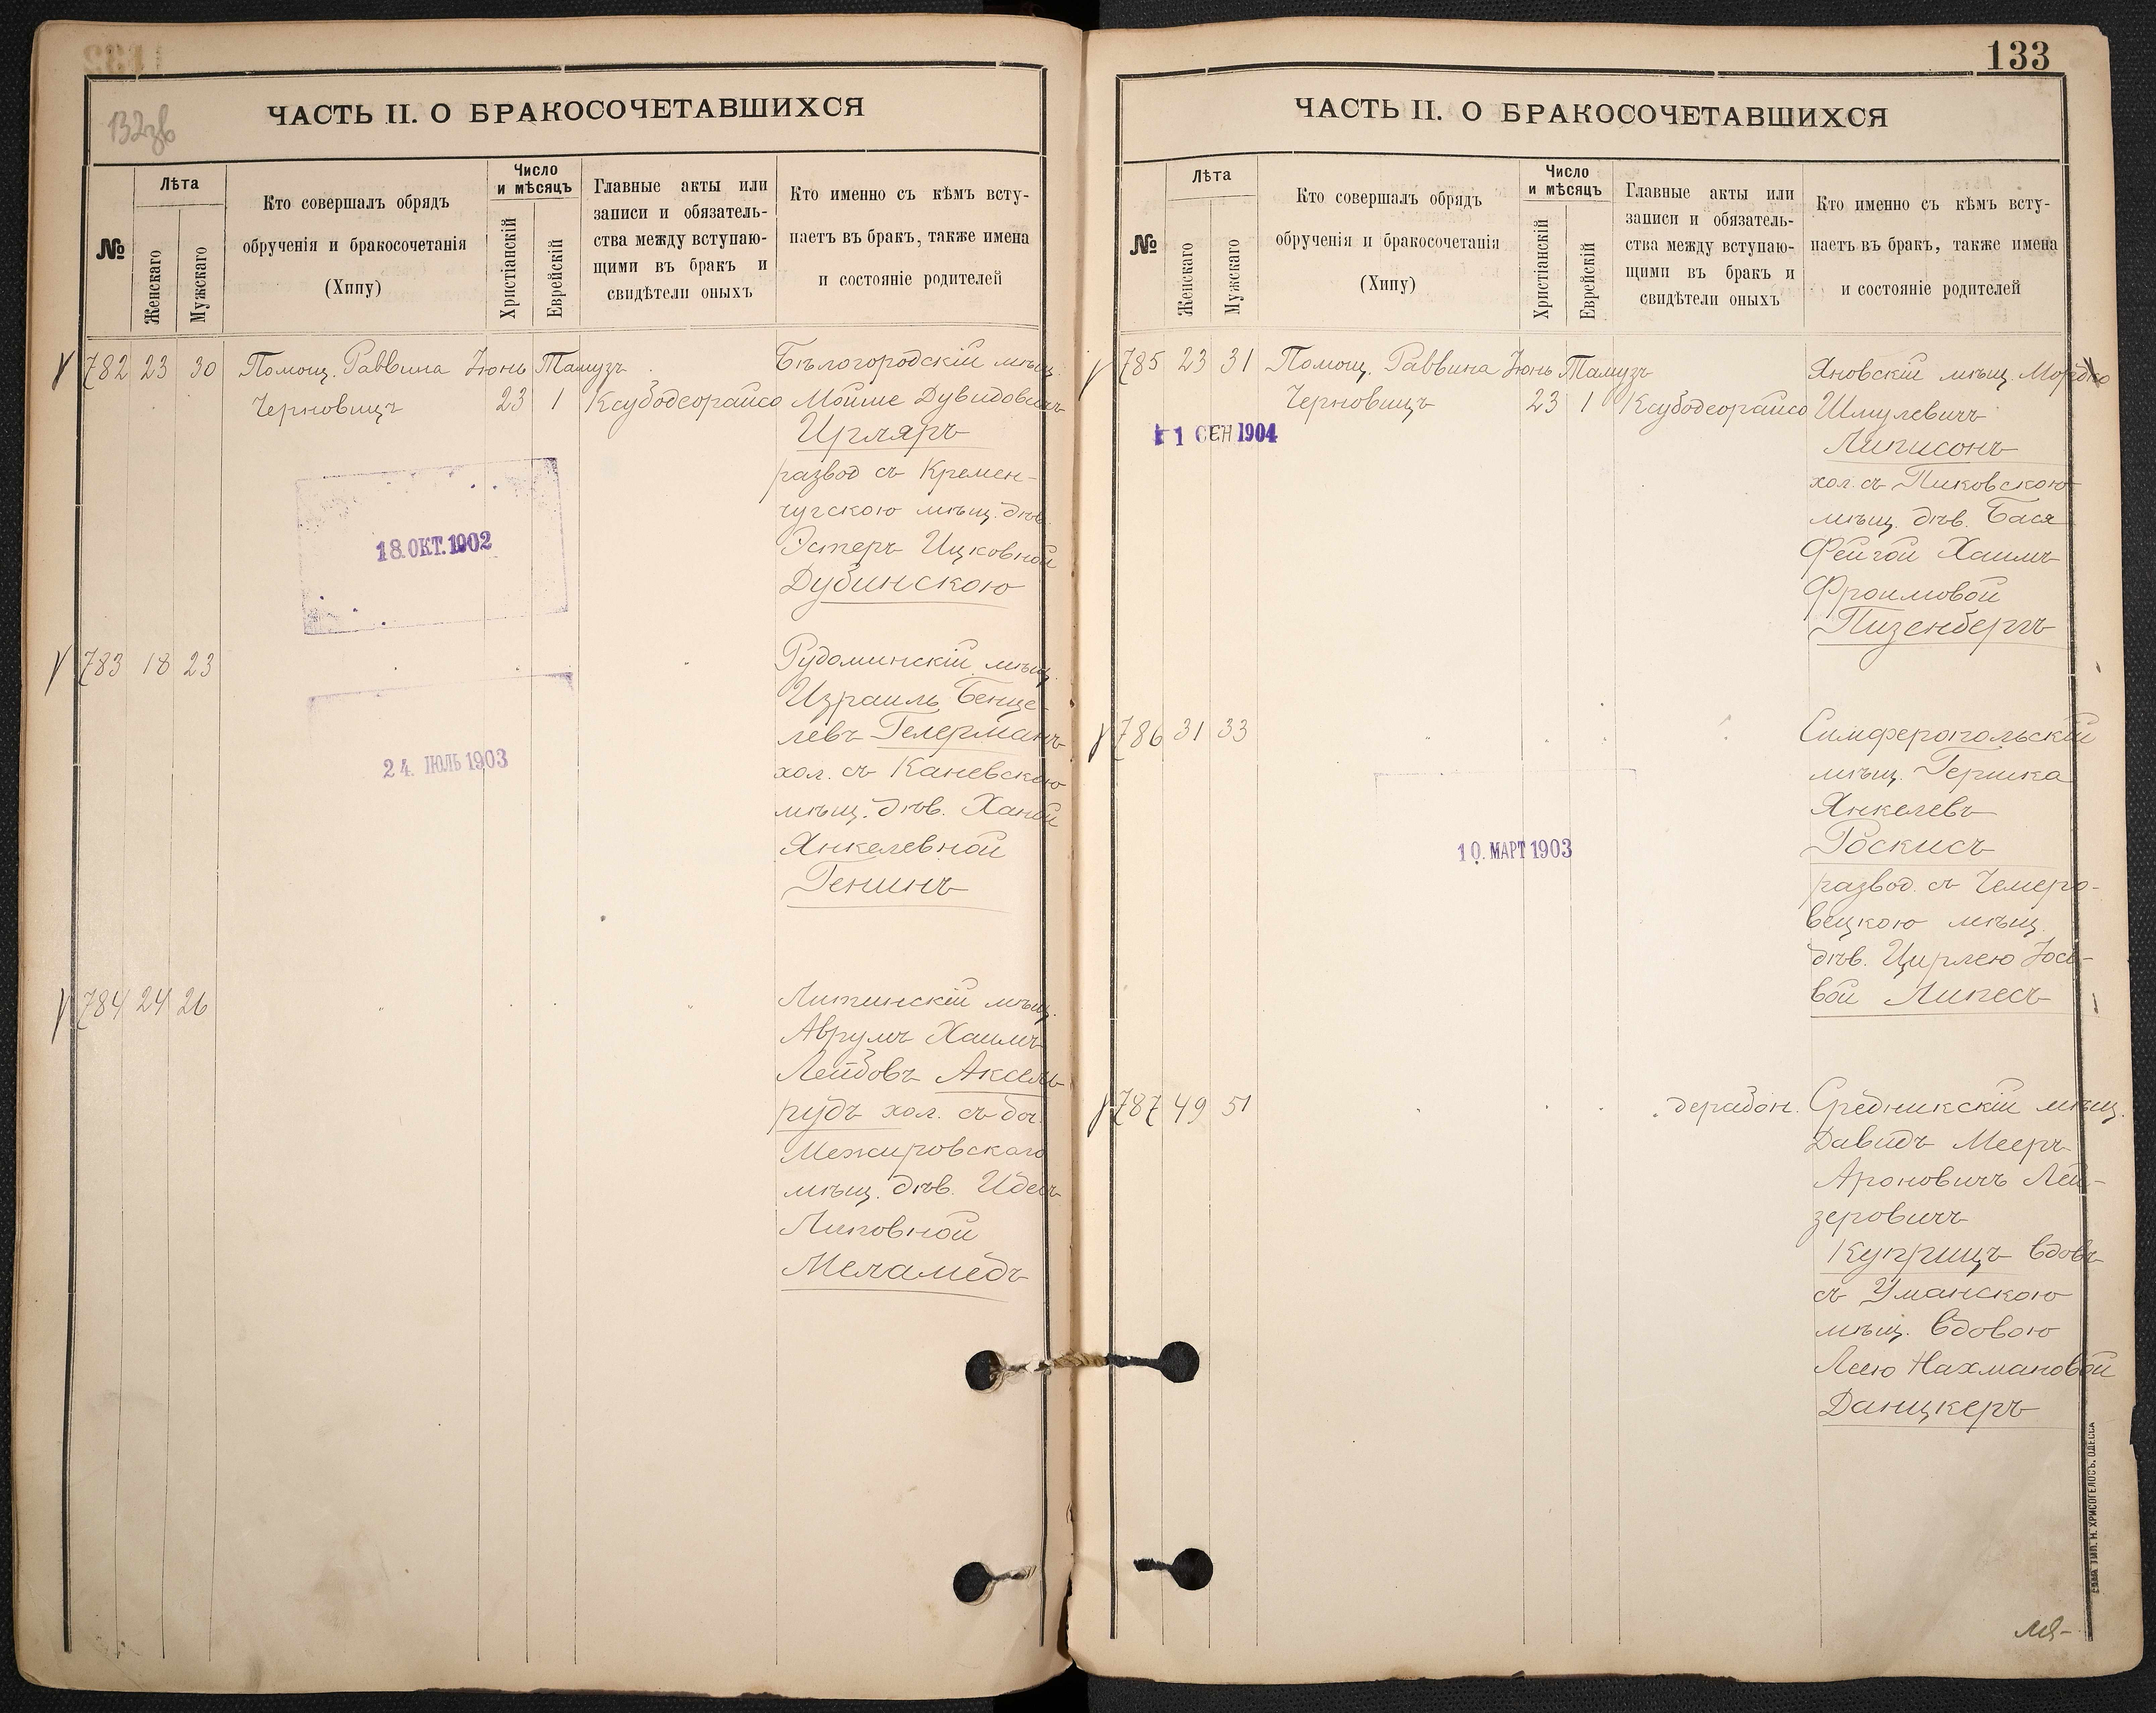 132зв
ЧАСТЬ II. О БРАКОСОЧЕТАВШИХСЯ
№
Лѣта
Женскаго
Мужскаго
Кто совершалъ обрядъ
обрученія и бракосочетанія
(Хипу)
Число
и мѣсяцъ
Христіанскій
Еврейскій
Главные акты или
записи и обязатель-
ства между вступаю-
щими въ бракъ и
свидѣтели оныхъ
Кто именно съ кѣмъ всту-
паетъ въ бракъ, также имена
и состояніе родителей
782 23 30 Помощ. Раввина Іюнь Тамузъ Бѣлогородскій мѣщ.
Черновицъ 23 1 Ксубодеорайсо Мойше Дувидовичъ
Ирляръ
развод съ Кремен-
чугскою мѣщ. дѣв.
Эстеръ Ицковной
Дубинскою
18.ОКТ.1902
783 18 23 Рудоминскій мѣщ.
Израиль Бенце-
левъ Гелерманъ
хол. съ Каневскою
мѣщ. дѣв. Ханой
Янкелевной
Генинъ
24. ІЮЛЬ 1903
784 24 26 Литинскій мѣщ.
Аврумъ Хаимъ
Лейбовъ Аксель-
рудъ хол. съ доч.
Межировскаго
мѣщ. дѣв. Идесъ
Липовной
Меламедъ
133
ЧАСТЬ II. О БРАКОСОЧЕТАВШИХСЯ
№
Лѣта
Женскаго
Мужскаго
Кто совершалъ обрядъ
обрученія и бракосочетанія
(Хипу)
Число
и мѣсяцъ
Христіанскій
Еврейскій
Главные акты или
записи и обязатель-
ства между вступаю-
щими въ бракъ и
свидѣтели оныхъ
Кто именно съ кѣмъ всту-
паетъ въ бракъ, также имена
и состояніе родителей
785 23 31 Помощ. Раввина Іюнь Тамузъ Яновскій мѣщ. Мордко
Черновицъ 23 1 Ксубодеорайсо Шмулевичъ
1 СЕН 1904
Липисонъ
хол. съ Пиковскою
мѣщ. дѣв. Бася
Фейгой Хаимъ
Фроимовой
Пизенбергъ
786 31 33 Симферопольскій
мѣщ. Гершка
Янкелевъ
Роскисъ
развод. съ Чемеро-
вецкою мѣщ.
дѣв. Цирлею Іосе-
вой Липесъ
10. МАРТ 1903
787 49 51 дерабон. Средникскій мѣщ.
Давидъ Мееръ
Ароновичъ Лей-
зеровичъ
Куприцъ вдовъ
съ Уманскою
мѣщ. вдовою
Леею Нахмановой
Данцкеръ
ТИП. Н. ХРИСОГЕЛОСЪ, ОДЕССА